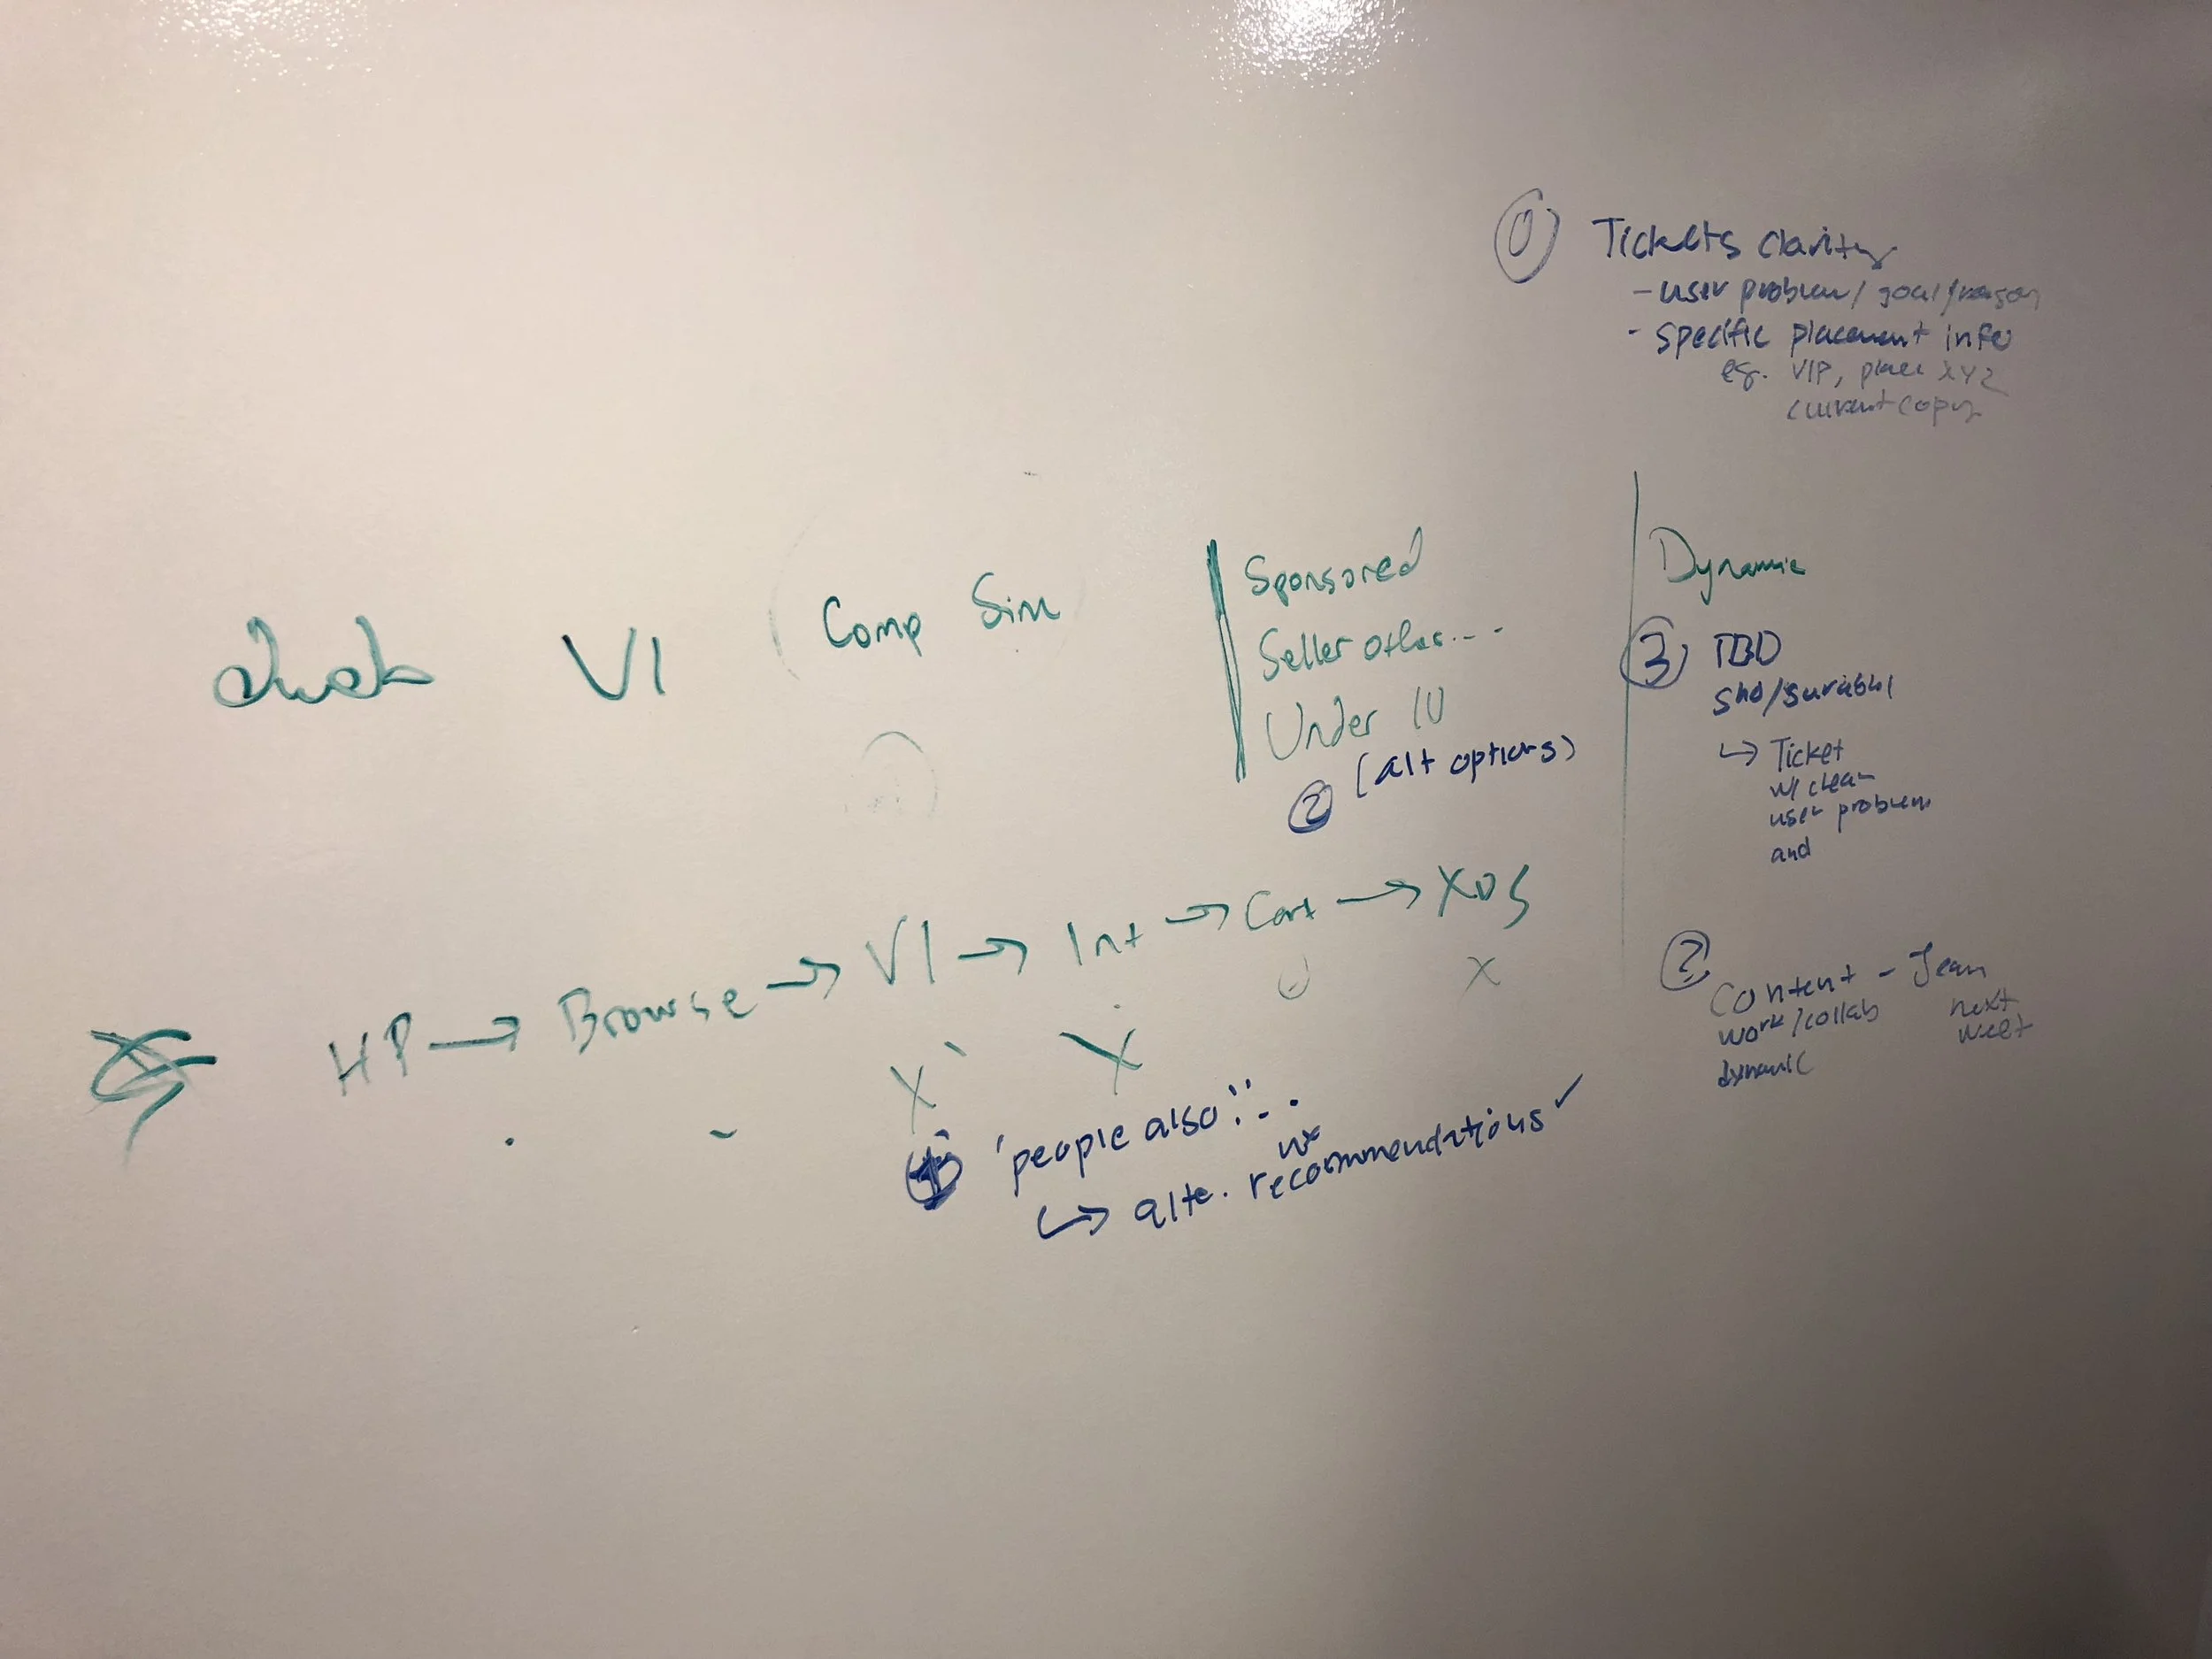 0 Tickets clarity
- user problem / goal / reason
- specific placement info
eg. VIP, place XYZ
current copy
VI
Comp Sim
Sponsored
Seller other...
Under 10
② (alt options)
Dynamic
③ TBD
→ Ticket
w/ clear
user problem
and
HP → Browse → VI → Int → Cart → XOS
X X X
① "people also"...
↳ alte. recommendations ✓
② Content - Jean
work/collab next
dynamic week